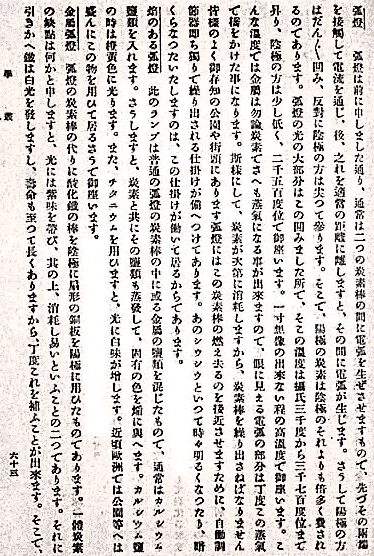 弧燈　弧燈は前に申しました通り、通常は二つの炭素棒の間に電弧を生ぜさせますもので、先づその兩端
を接觸して電流を通じ、後、之れを適當の距離に離しますと、その間に電弧が生じます。さうして陽極の方
はだん〳〵凹み、反對に陰極の方は尖つて參ります。そこで、陽極の炭素は陰極のそれよりも倍多く費され
るのであります。弧燈の光の大部分はこの凹みました所で、そこの溫度は攝氏三千度から三千七百度位まで
昇り、陰極の方は少し低く、二千五百度位で御座います。一寸想像の出來ない程の高溫度で御座います。こ
んな溫度では金屬は勿論炭素でさへも蒸氣になる事が出來ますので、眼に見える電弧の部分は丁度この蒸氣
で橋をかけた事になります。斯樣にして、炭素が次第に消耗しますから、炭素棒を繰り出さねばなりません
皆樣のよく御存知の公園や街頭にあります弧燈にはこの炭素棒の燃え去るのを接近させますために、自動調
節器即ち獨りで繰り出される仕掛けが備へつけてあります。あのシウシウといつて時々明るくなつたり、暗
くらなつたいたしますのは、この仕掛けが働いて居るからであります。
焰のある弧燈　此のランプは普通の弧燈の炭素棒の中に或る金屬の鹽類を混じたもので、通常はカルシウム
鹽類を入れます。さうしますと、炭素と共にその鹽類も蒸發して、固有の色を焰に與へます。カルシウム鹽
の時は橙黃色に光ります。また、チタニウムを用ひますと、光に白味が增します。近頃歐洲では公園等へは
盛んにこの物を用ひて居るさうで御座います。
金屬弧燈　弧燈の炭素棒の代りに酸化鐵の棒を陰極に扇形の銅板を陽極に用ひたものであります。一體炭素
の缺點は何かと申しますと、光には紫味を帶び、其の上、消耗し易いといふことの二つであります。それに
引きかへ鐵は白光を發しますし、壽命も至つて長くありますから、丁度これを補ふことが出來ます。そこで、
學叢
六十三